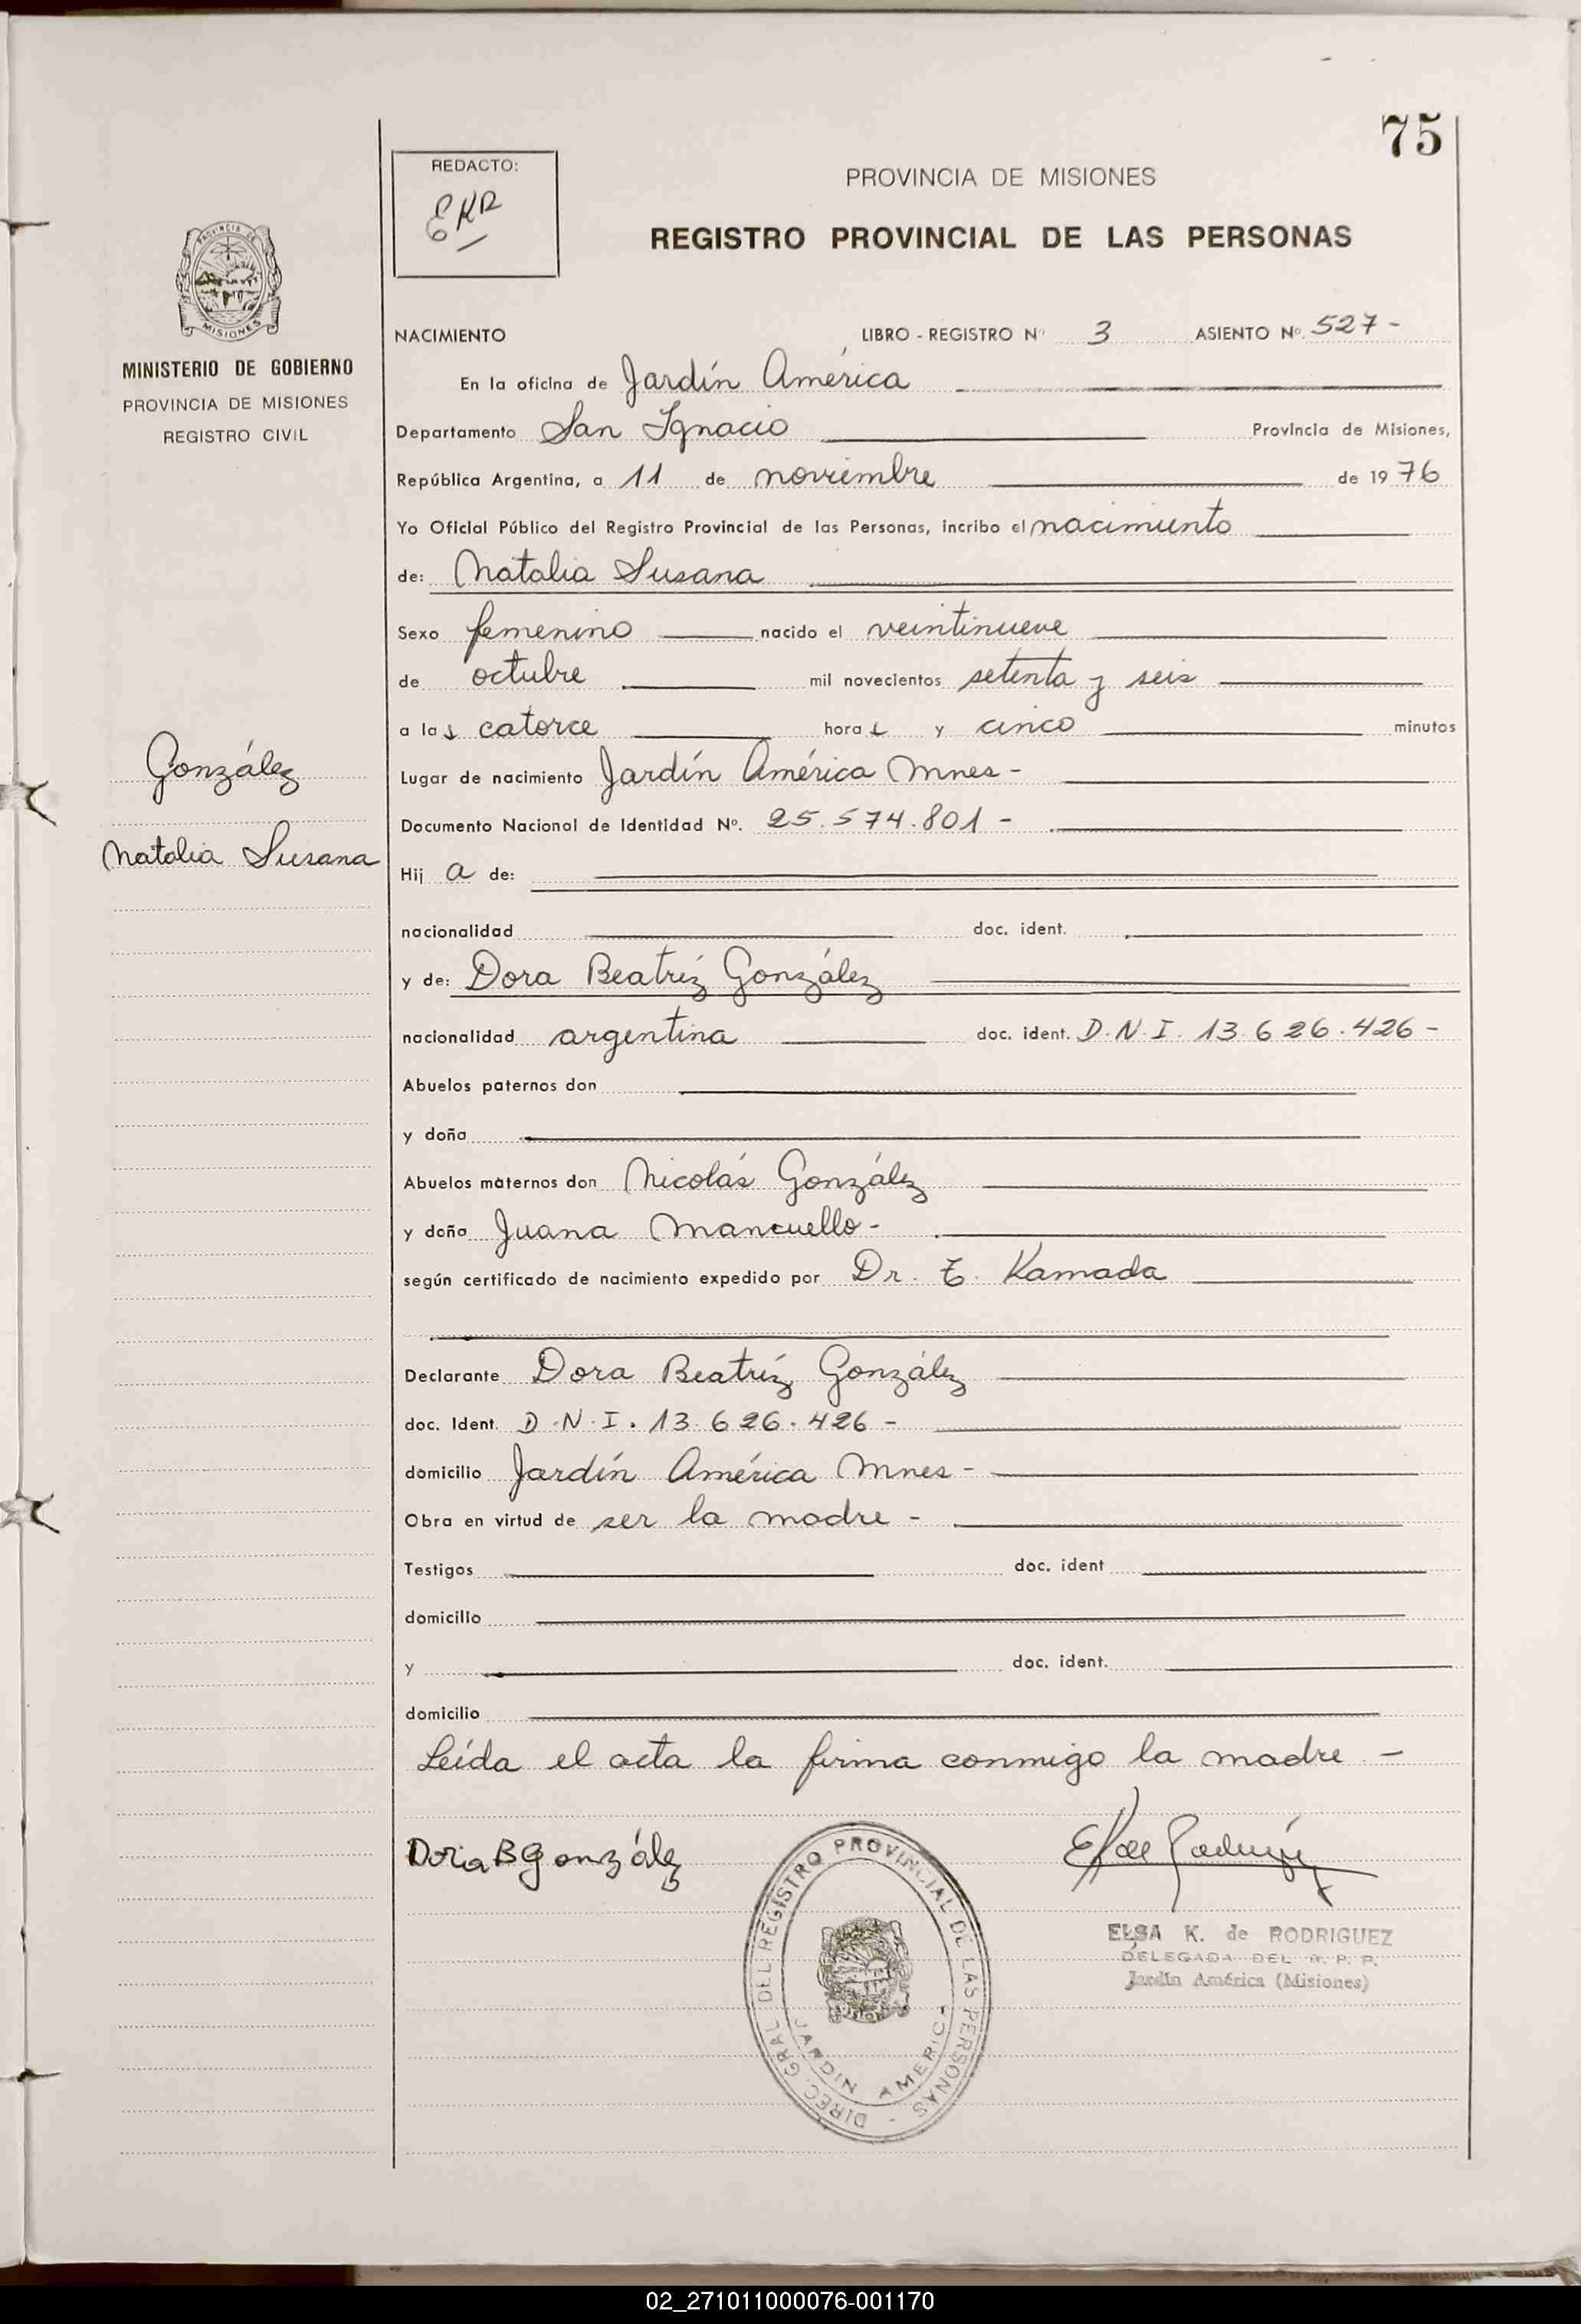 75
REDACTO:
EKR
PROVINCIA DE MISIONES
REGISTRO PROVINCIAL DE LAS PERSONAS
PROVINCIA DE
MISIONES
MINISTERIO DE GOBIERNO
PROVINCIA DE MISIONES
REGISTRO CIVIL
González
Natalia Susana
NACIMIENTO LIBRO - REGISTRO Nº 3 ASIENTO Nº. 527 -
En la oficina de Jardín América
Departamento San Ignacio Provincia de Misiones,
República Argentina, a 11 de noviembre de 19 76
Yo Oficial Público del Registro Provincial de las Personas, incribo el nacimiento
de: Natalia Susana
Sexo femenino nacido el veintinueve
de octubre mil novecientos setenta y seis
a las catorce horas y cinco minutos
Lugar de nacimiento Jardín América Mnes -
Documento Nacional de Identidad Nº. 25.574.801 -
Hij a de:
nacionalidad doc. ident.
y de: Dora Beatríz González
nacionalidad argentina doc. ident. D.N.I. 13.626.426 -
Abuelos paternos don
y doña
Abuelos maternos don Nicolás González
y doña Juana Mancuello -
según certificado de nacimiento expedido por Dr. T. Kamada
Declarante Dora Beatríz González
doc. Ident. D.N.I. 13.626.426 -
domicilio Jardín América Mnes -
Obra en virtud de ser la madre -
Testigos doc. ident
domicilio
y doc. ident.
domicilio
Leída el acta la firma conmigo la madre -
Dora B González
DIREC. GRAL. DEL REGISTRO PROVINCIAL DE LAS PERSONAS -
JARDIN AMERICA
ELSA K. de RODRIGUEZ
DELEGADA DEL R. P. P.
Jardín América (Misiones)
02_271011000076-001170